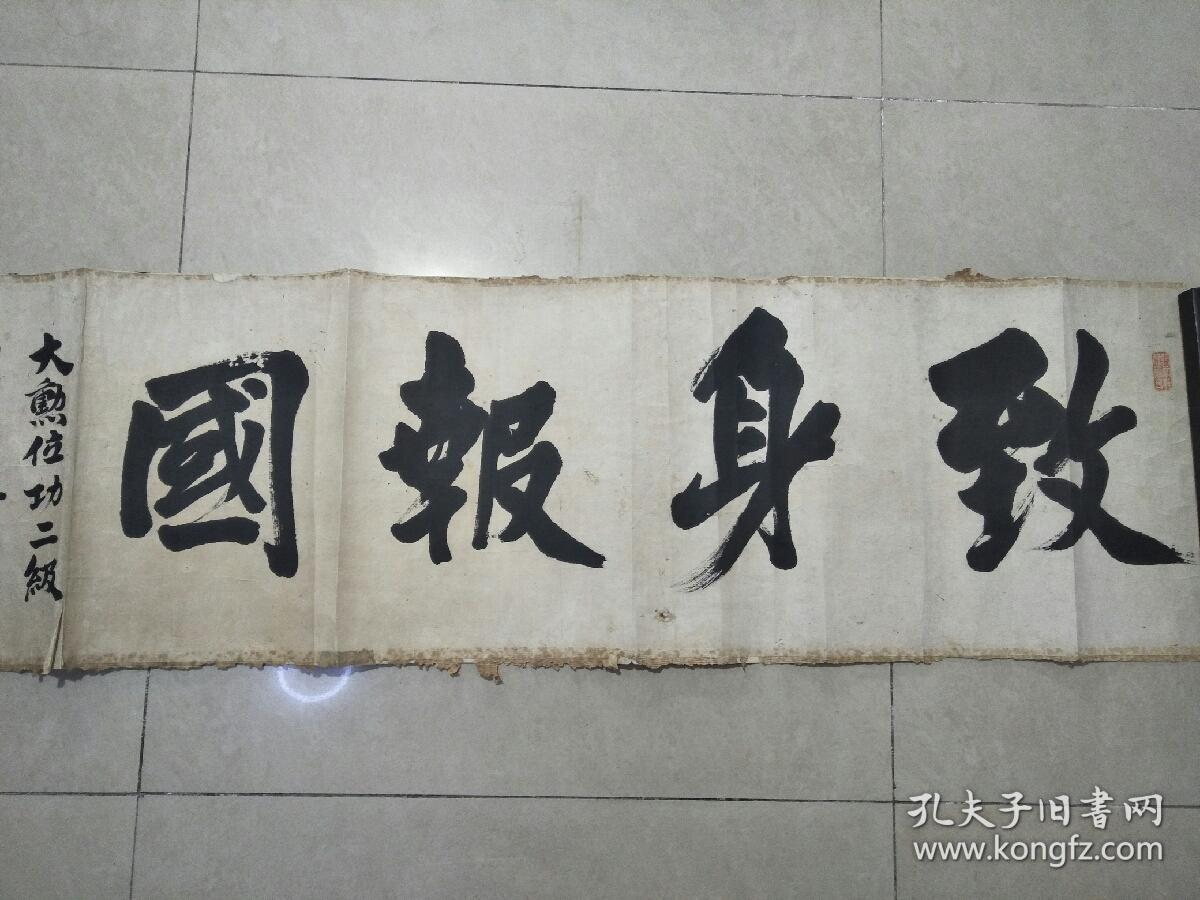 致身報國
大勲位功二級
孔夫子旧書网
www.kongfz.com